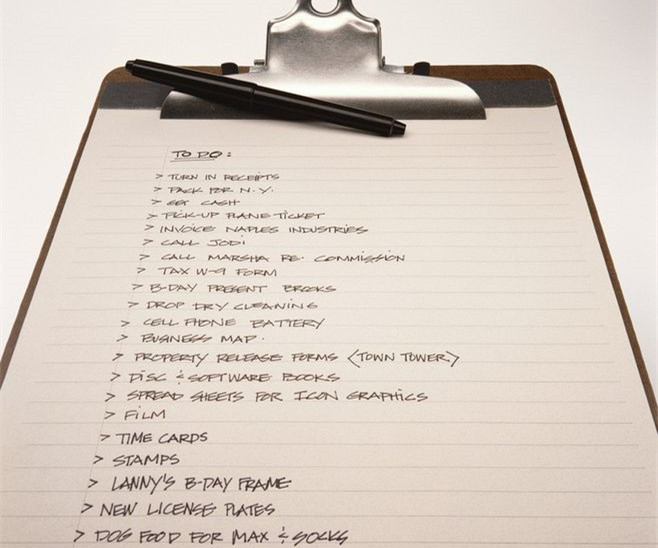 TO DO:
> TURN IN RECEIPTS
> PACK FOR N.Y.
> GET CASH
> PICK-UP PLANE TICKET
> INVOICE NAPLES INDUSTRIES
> CALL JODI
> CALL MARSHA RE: COMMISSION
> TAX W-9 FORM
> B-DAY PRESENT BROOKS
> DROP DRY CLEANING
> CELL PHONE BATTERY
> BUSINESS MAP.
> PROPERTY RELEASE FORMS <TOWN TOWER>
> DISC & SOFTWARE BOOKS
> SPREAD SHEETS FOR ICON GRAPHICS
> FILM
> TIME CARDS
> STAMPS
> LANNY'S B-DAY FRAME
> NEW LICENSE PLATES
> DOG FOOD FOR MAX & SOCKS